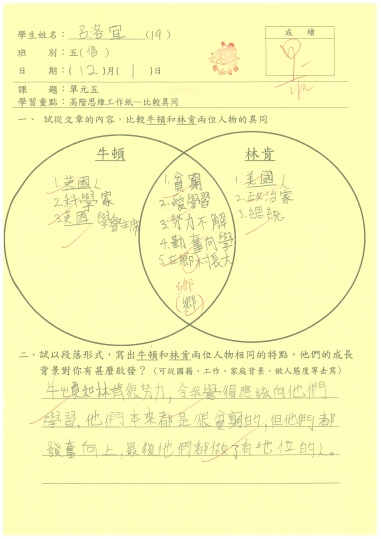 學生姓名：呂洛宜 (19)
成績
班 別：五(信)
日 期：(12)月(1)日
課 題：單元五
學習重點：高階思維工作紙—比較異同
一、 試從文章的內容，比較牛頓和林肯兩位人物的異同
牛頓
林肯
1.英國人
2.科學家
3.英國學會主席
1.貧窮
2.愛學習
3.努力不解
4.勤奮向學
5.在鄉村長大
鄉
(鄉)
1.美國人
2.政治家
3.總統
二、試以段落形式，寫出牛頓和林肯兩位人物相同的特點。他們的成長
背景對你有甚麼啟發？（可從國籍、工作、家庭背景、做人態度等去寫）
牛頓和林肯很努力，令我覺得應該向他們
學習，他們本來都是很貧窮的，但他們都
發奮向上，最後他們都做了有地位的人。